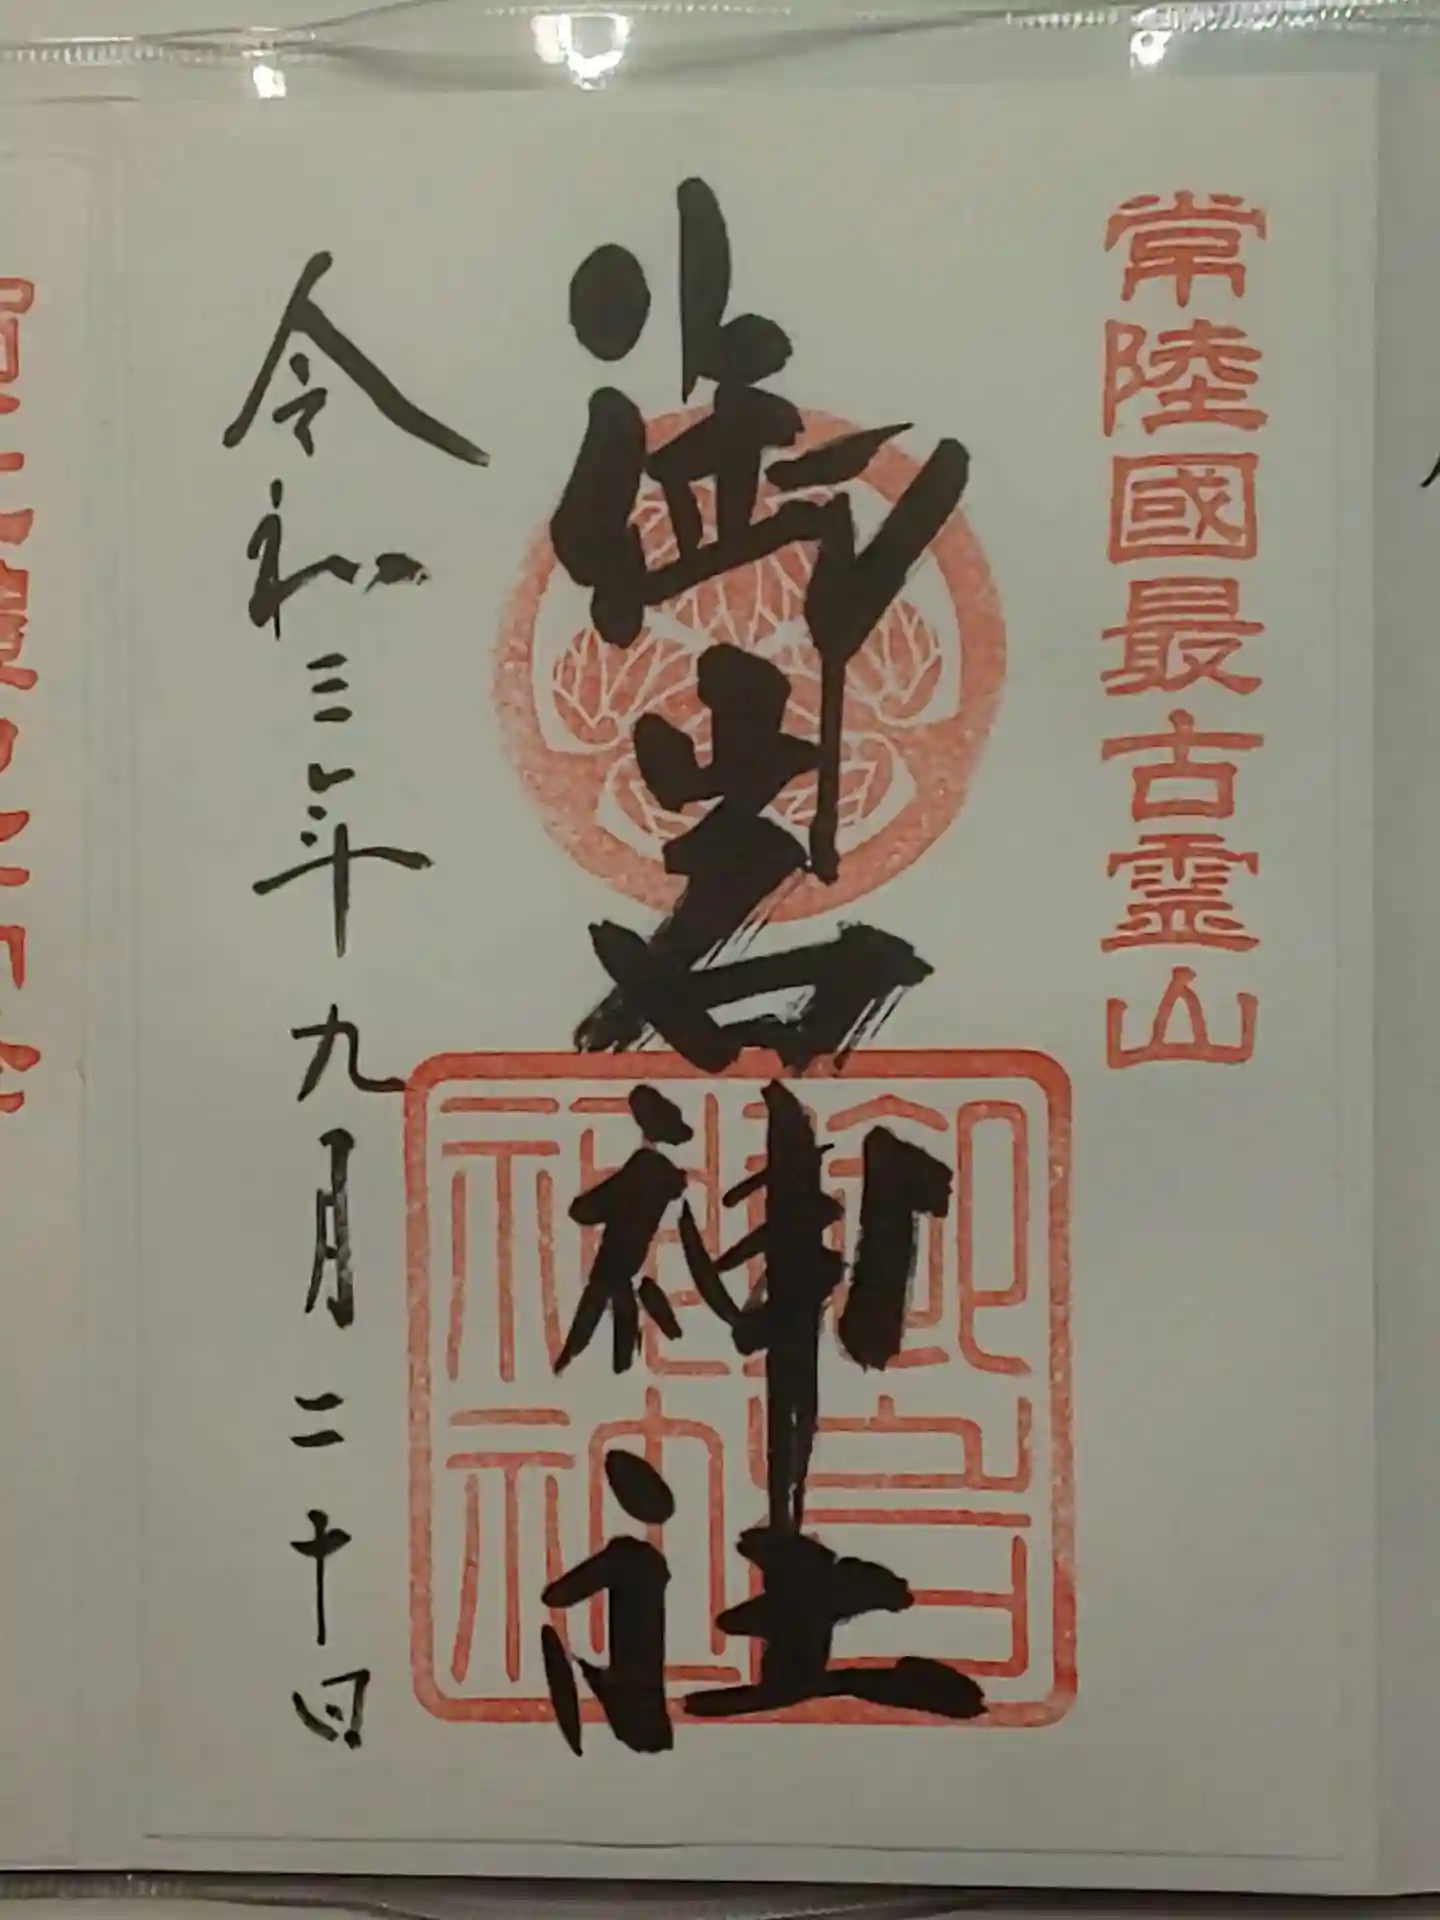 常陸國最古霊山
御岩神社
令和三年九月二十日
御岩神社